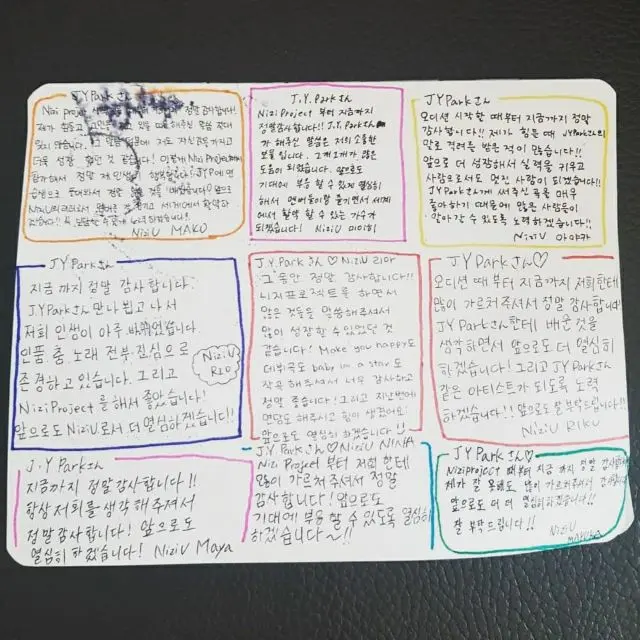 J.Y.Parkさん
Nizi project 정말 감사합니다!
NiziU MAKO
J.Y.Parkさん
Nizi Project 부터 지금까지
정말 감사합니다!! J.Y.Parkさん
가 해주신 말씀은 저희 소중한
보물 입니다. 그게 많은
도움이 되었습니다. 앞으로
기대에 부응 할 수 있게 열심히
해서 멤버들이랑 즐기면서 세계
에서 활약 할 수 있는 가수가
되겠습니다! NiziU 미이히
JYParkさん
오디션 시작할 때부터 지금까지 정말
감사합니다!! 제가 힘든 때 JYPark さんの
말로 격려를 받은적이 많습니다!
앞으로 더 성장해서 실력을 키우고
사람으로서도 멋진 사람이 되겠습니다!
JYParkさん께 써주신 곡을 매우
좋아하기 때문에 많은 사람들이
알아갈 수 있도록 노력하겠습니다!!
NiziU 아야카
JYParkさん
지금 까지 정말 감사합니다.
J.Y.Parkさん 만나 뵙고 나서
저희 인생이 아주 바뀌었습니다
인품 춤 노래 전부 진심으로
존경하고 있습니다. 그리고
NiziProject 를 해서 좋았습니다!
앞으로도 NiziU로서 더 열심하겠습니다!!
NiziU
RIO
J.Y.Parkさん♡ NiziU 리마
그동안 정말 감사합니다!!
니지프로젝트를 하면서
많은 것들을 말씀해주셔서
많이 성장할 수 있었던 것
같습니다! Make you happy도
데뷔곡도 baby in a star도
작곡 해주셔서 너무 감사하고
정말 좋습니다! 그리고 지난번에
면담도 해주시고 힘이 생겼어요!
앞으로도 열심히 하겠습니다!!
JY Parkさん♡
오디션 때부터 지금까지 저희한테
많이 가르쳐주셔서 정말 감사합니다!
JY Parkさん한테 배운것을
생각하면서 앞으로도 더 열심히
하겠습니다! 그리고 JY Parkさん
같은 아티스트가 되도록 노력
하겠습니다!! 앞으로도 잘 부탁드립니다!!
NiziU RIKU
J.Y Parkさん
지금까지 정말 감사합니다!!
항상 저희를 생각해 주셔서
정말 감사합니다! 앞으로도
열심히 하겠습니다! NiziU Maya
JY Parkさん♡ NiziU NINA
Nizi Project 부터 저희 한테
많이 가르쳐주셔서 정말
감사합니다! 앞으로도
기대에 부응 할 수 있도록 열심히
하겠습니다~!!
JY Parkさん♡
Niziproject 때부터 지금 까지 정말 감사합니다
제가 잘 못해도 많이 가르쳐주셔서
앞으로도 더 더 열심히 하겠습니다!!
잘 부탁드립니다!!
NiziU
MAYUKA